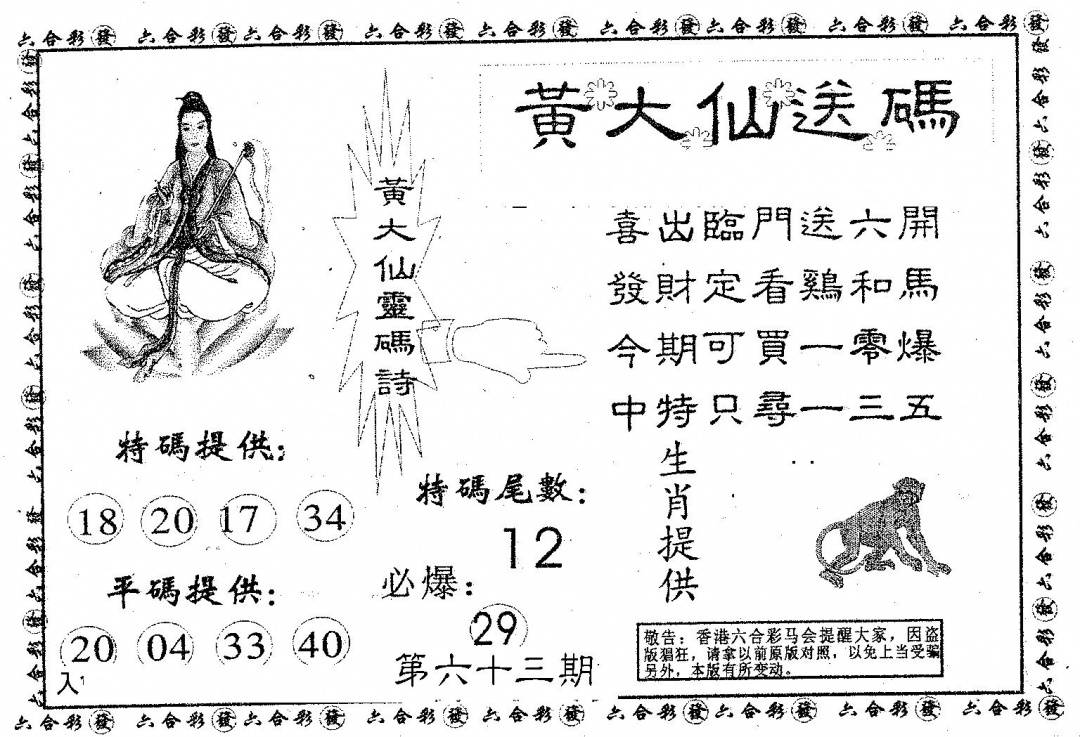 六合彩發 六合彩發六合彩發 六合彩發六合彩發 六合彩發六合彩發 六合彩發 六合彩發
黃大仙送碼
黃大仙靈碼詩
喜出臨門送六開
發財定看鷄和馬
今期可買一零爆
中特只尋一三五
特碼提供：
18 20 17 34
平碼提供：
20 04 33 40
特碼尾數：
12
必爆：
29
第六十三期
生肖提供
敬告：香港六合彩马会提醒大家，因盗
版猖狂，请拿以前原版对照，以免上当受骗
另外，本版有所变动。
六合彩發 六合彩發六合彩發 六合彩發六合彩發 六合彩發六合彩發 六合彩發 六合彩發